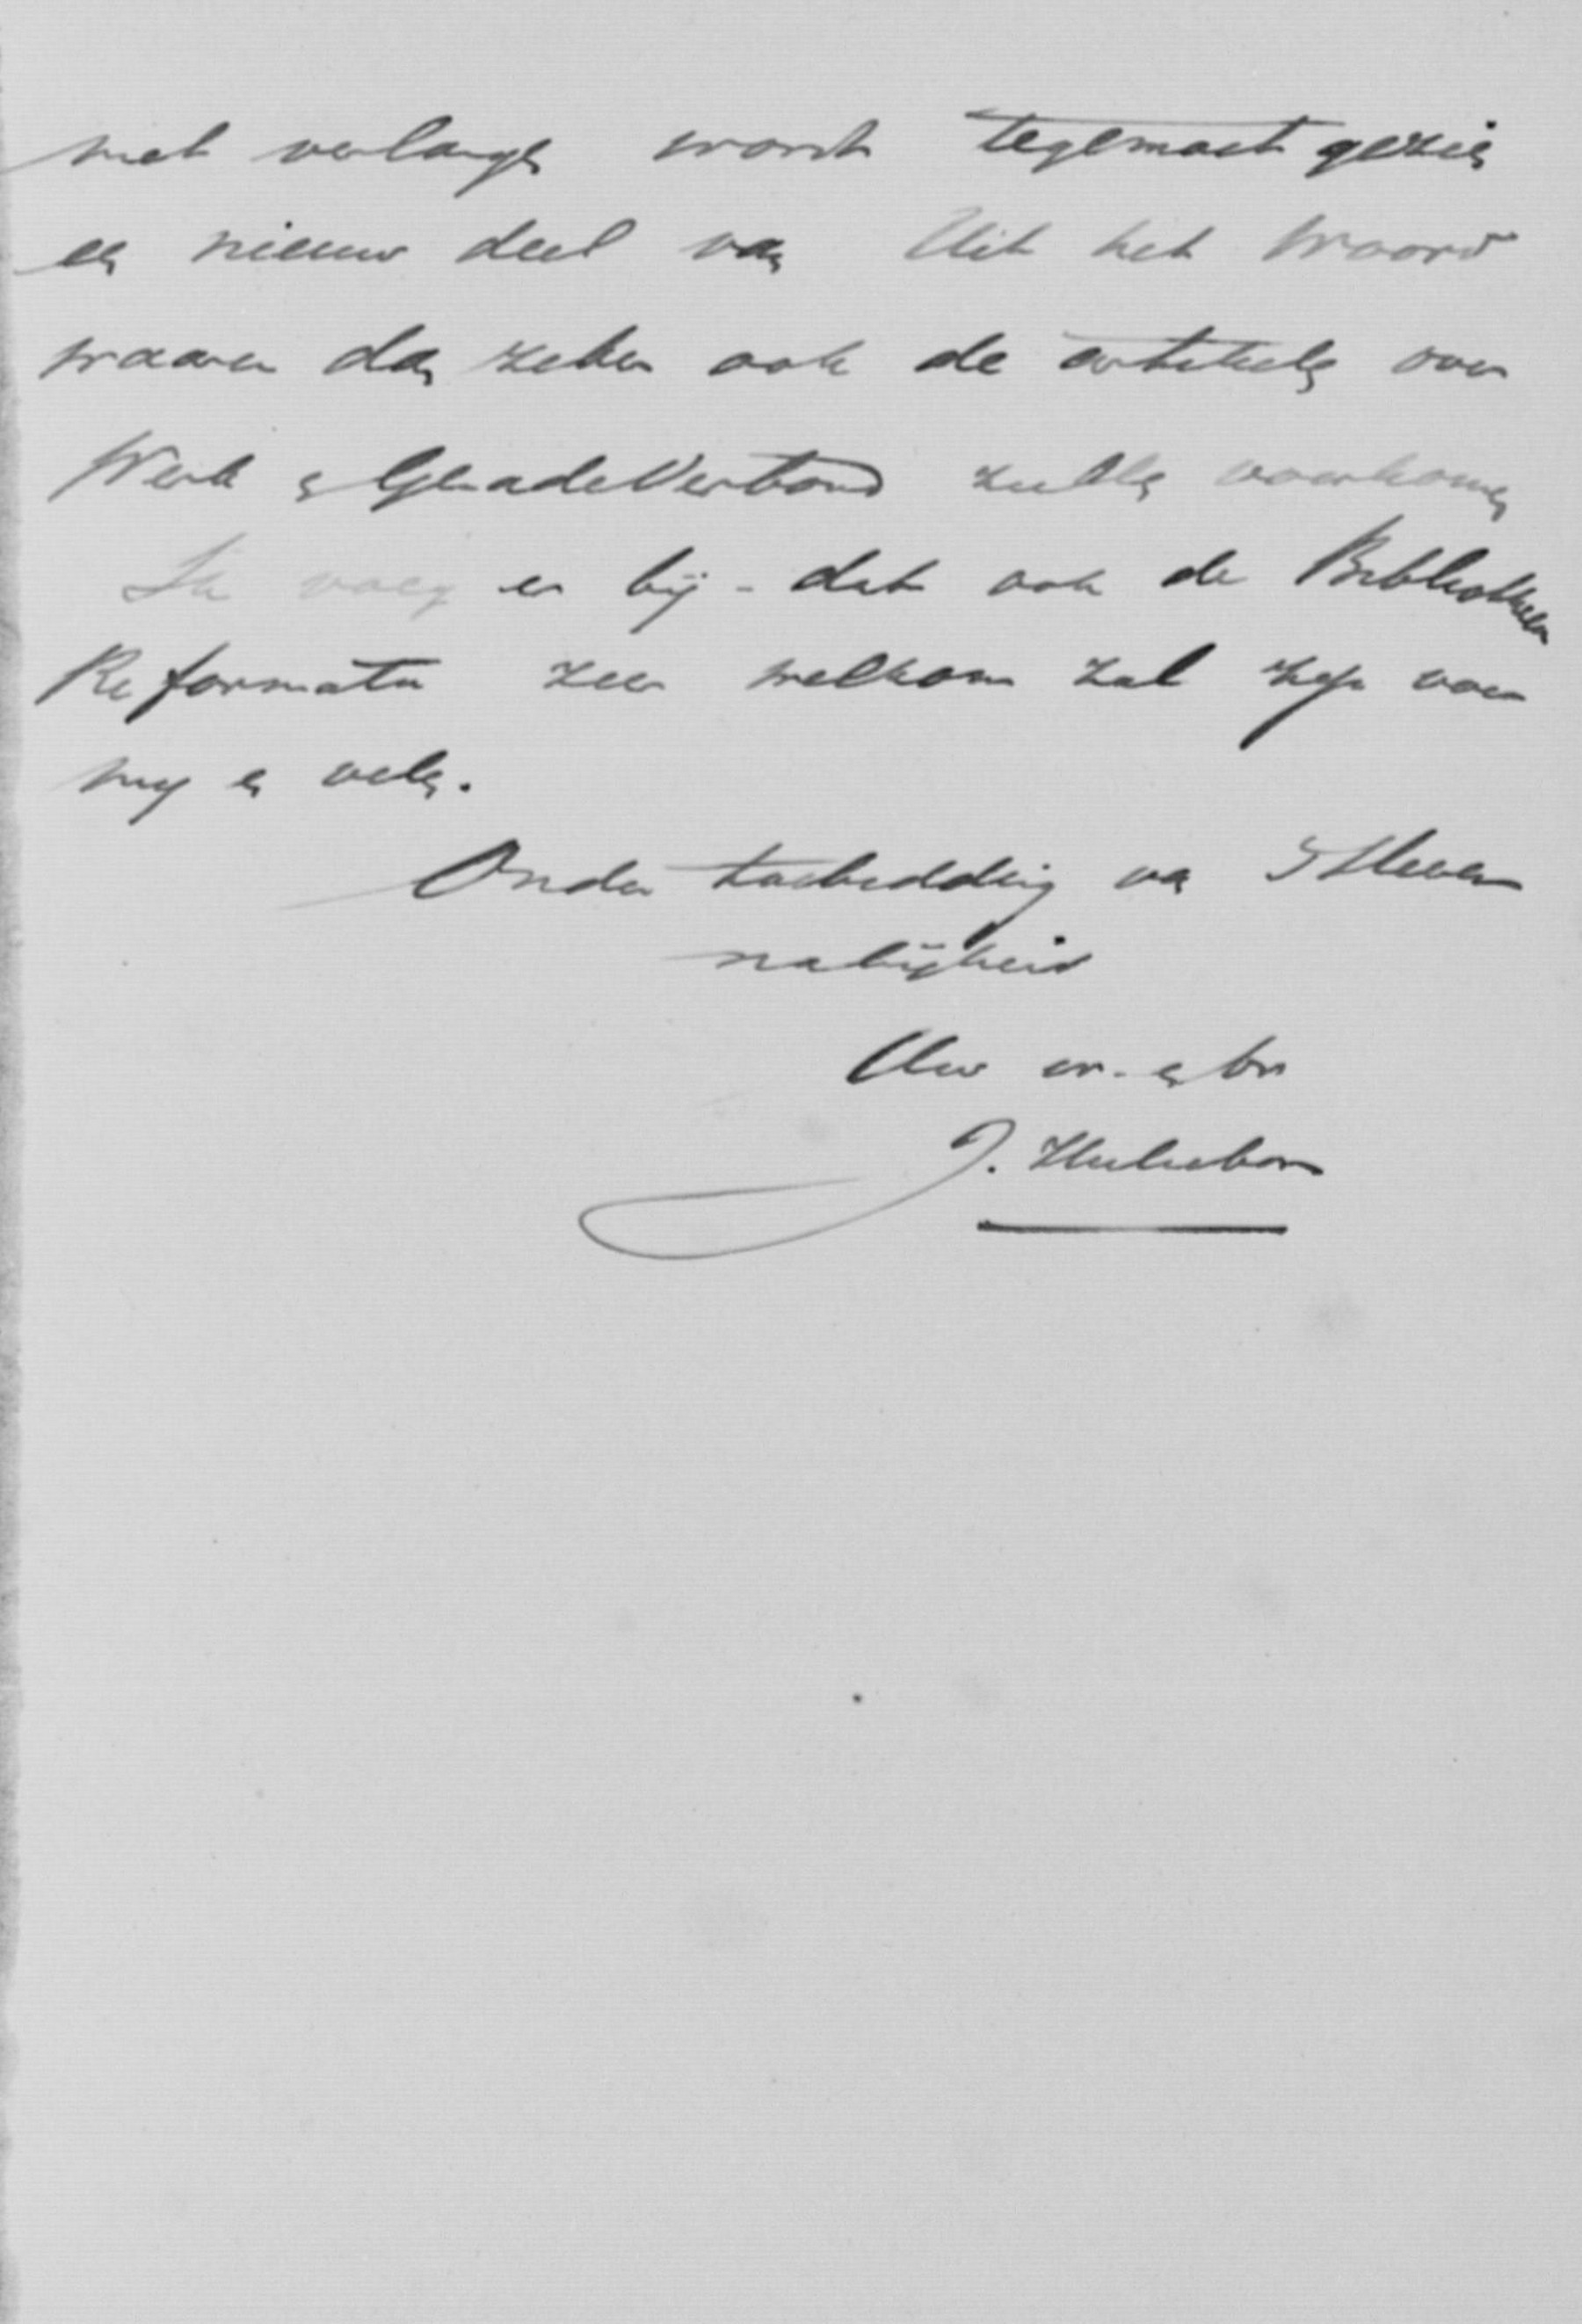 met verlangen wordt tegemoet gezien
een nieuw deel van Uit het Woord
waarin dan zeker ook de artikels over
Werk en GenadeVerbond zullen voorkomen
Ik voeg er bij - dat ook de Bibliotheca
Reformata zeer welkom zal zijn voor
mij en velen.
Onder toebidding van 's Heeren
nabijheid
Uw vr. en br
J.